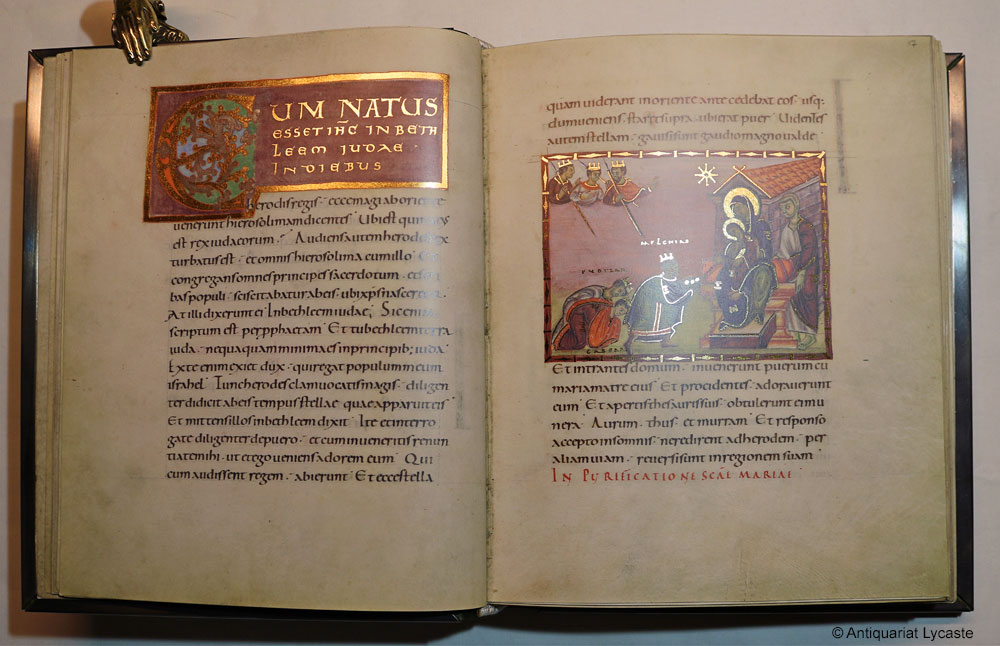 CUM NATUS
ESSET IHC IN BETH
LEEM JUDAE
IN DIEBUS
herodis regis · ecce magi ab oriente
venerunt hierosolimam dicentes · Ubi est qui
est rex iudaeorum · Audiens autem herodes rex
turbatus est · et omnis hierosolima cum illo · Et
congregans omnes principes sacerdotum ·
bas populi · sciscitabatur ab eis · ubi xps nasceretur
At illi dixerunt ei In bethleem iudae · Sic enim
scriptum est per pphaetam Et tu bethleem terra
iuda · nequaquam minima es in principib; iuda
Ex te enim exiet dux · qui regat populum meum
israhel Tunc herodes clam uocatis magis · diligen
ter didicit ab eis tempus stellae quae apparuit eis
Et mittens illos in bethleem dixit Ite et interro
gate diligenter de puero · et cum inueneritis renun
tiate mihi · ut et ego ueniens adorem eum Qui
cum audissent regem · abierunt Et ecce stella
quam uiderant in oriente antecedebat eos · usq;
dum ueniens staret supra · ubi erat puer Uidentes
autem stellam · gauisi sunt gaudio magno ualde
MELCHIAR
Et intrantes domum · inuenerunt puerum cu
maria matre eius Et procidentes adorauerunt
eum Et apertis thesauris suis · obtulerunt ei mu
nera · Aurum · thus · et murram Et responso
accepto in somnis · ne redirent ad herodem · per
aliam uiam · reuersi sunt in regionem suam
IN PURIFICATIONE SCAE MARIAE
© Antiquariat Lycaste